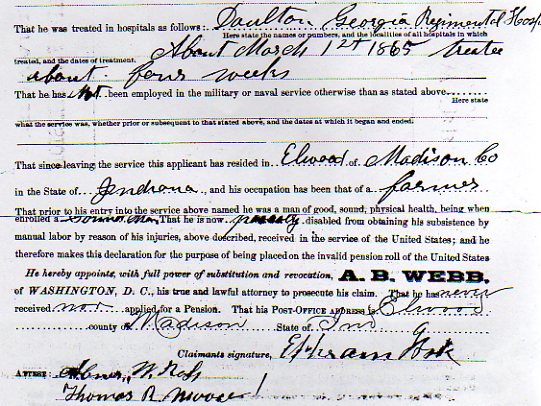 That he was treated in hospitals as follows: Daulton Georgia Regimental Hosp
Here state the names or numbers, and the localities of all hospitals in which
About March 1st 1865 treated
treated, and the dates of treatment.
about four weeks
That he has not been employed in the military or naval service otherwise than as stated above
Here state
what the service was, whether prior or subsequent to that stated above, and the dates at which it began and ended.
That since leaving the service this applicant has resided in Elwood of Madison Co
in the State of Indiana, and his occupation has been that of a farmer
That prior to his entry into the service above named he was a man of good, sound, physical health, being when
enrolled a sound man That he is now disabled from obtaining his subsistence by
manual labor by reason of his injuries, above described, received in the service of the United States; and he
therefore makes this declaration for the purpose of being placed on the invalid pension roll of the United States
He hereby appoints, with full power of substitution and revocation, A. B. WEBB.
of WASHINGTON, D. C., his true and lawful attorney to prosecute his claim. That he has never
received nor applied for a Pension. That his POST-OFFICE ADDRESS is Elwood
county of Madison State of Ind
Claimants signature, Ephram
ATTEST: Abner W. Ross
Thomas R. Moore